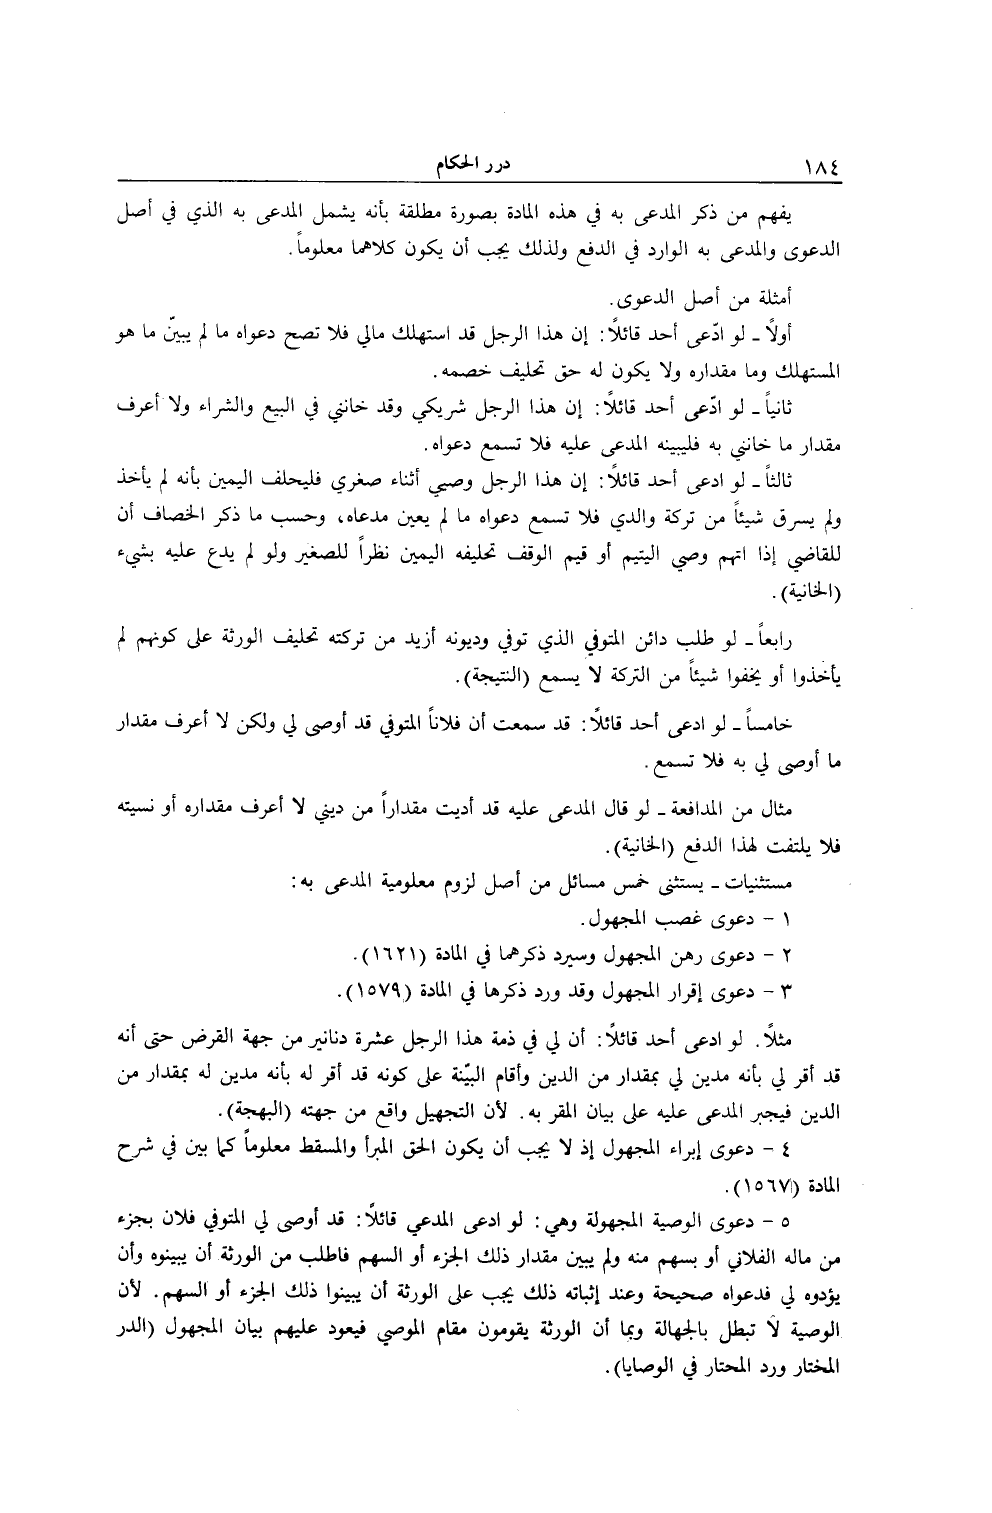 ١٨٤
درر الحكام
يفهم من ذكر المدعى به في هذه المادة بصورة مطلقة بأنه يشمل المدعى به الذي في أصل
الدعوى والمدعى به الوارد في الدفع ولذلك يجب أن يكون كلاهما معلوماً.
أمثلة من أصل الدعوى.
أولاً ـ لو ادّعى أحد قائلاً: إن هذا الرجل قد استهلك مالي فلا تصح دعواه ما لم يبينّ ما هو
المستهلك وما مقداره ولا يكون له حق تحليف خصمه.
ثانياً ـ لو ادّعى أحد قائلاً: إن هذا الرجل شريكي وقد خانني في البيع والشراء ولا أعرف
مقدار ما خانني به فليبينه المدعى عليه فلا تسمع دعواه.
ثالثاً ـ لو ادعى أحد قائلاً: إن هذا الرجل وصيي أثناء صغري فليحلف اليمين بأنه لم يأخذ
ولم يسرق شيئاً من تركة والدي فلا تسمع دعواه ما لم يعين مدعاه، وحسب ما ذكر الخصاف أن
للقاضي إذا اتهم وصي اليتيم أو قيم الوقف تحليفه اليمين نظراً للصغير ولو لم يدع عليه بشيء
(الخانية).
رابعاً ـ لو طلب دائن المتوفي الذي توفي وديونه أزيد من تركته تحليف الورثة على كونهم لم
يأخذوا أو يخفوا شيئاً من التركة لا يسمع (النتيجة).
خامساً ـ لو ادعى أحد قائلاً: قد سمعت أن فلاناً المتوفي قد أوصى لي ولكن لا أعرف مقدار
ما أوصى لي به فلا تسمع.
مثال من المدافعة ـ لو قال المدعى عليه قد أديت مقداراً من ديني لا أعرف مقداره أو نسيته
فلا يلتفت لهذا الدفع (الخانية).
مستثنيات ـ يستثنى خمس مسائل من أصل لزوم معلومية المدعى به:
١ - دعوى غصب المجهول.
٢ - دعوى رهن المجهول وسيرد ذكرهما في المادة (١٦٢١).
٣ - دعوى إقرار المجهول وقد ورد ذكرها في المادة (١٥٧٩).
مثلاً. لو ادعى أحد قائلاً: أن لي في ذمة هذا الرجل عشرة دنانير من جهة القرض حتى أنه
قد أقر لي بأنه مدين لي بمقدار من الدين وأقام البيّنة على كونه قد أقر له بأنه مدين له بمقدار من
الدين فيجبر المدعى عليه على بيان المقر به. لأن التجهيل واقع من جهته (البهجة).
٤ - دعوى إبراء المجهول إذ لا يجب أن يكون الحق المبرأ والمسقط معلوماً كما بين في شرح
المادة (١٥٦٧).
٥ - دعوى الوصية المجهولة وهي: لو ادعى المدعي قائلاً: قد أوصى لي المتوفي فلان بجزء
من ماله الفلاني أو بسهم منه ولم يبين مقدار ذلك الجزء أو السهم فاطلب من الورثة أن يبينوه وأن
يؤدوه لي فدعواه صحيحة وعند إثباته ذلك يجب على الورثة أن يبينوا ذلك الجزء أو السهم. لأن
الوصية لا تبطل بالجهالة وبما أن الورثة يقومون مقام الموصي فيعود عليهم بيان المجهول (الدر
المختار ورد المحتار في الوصايا).